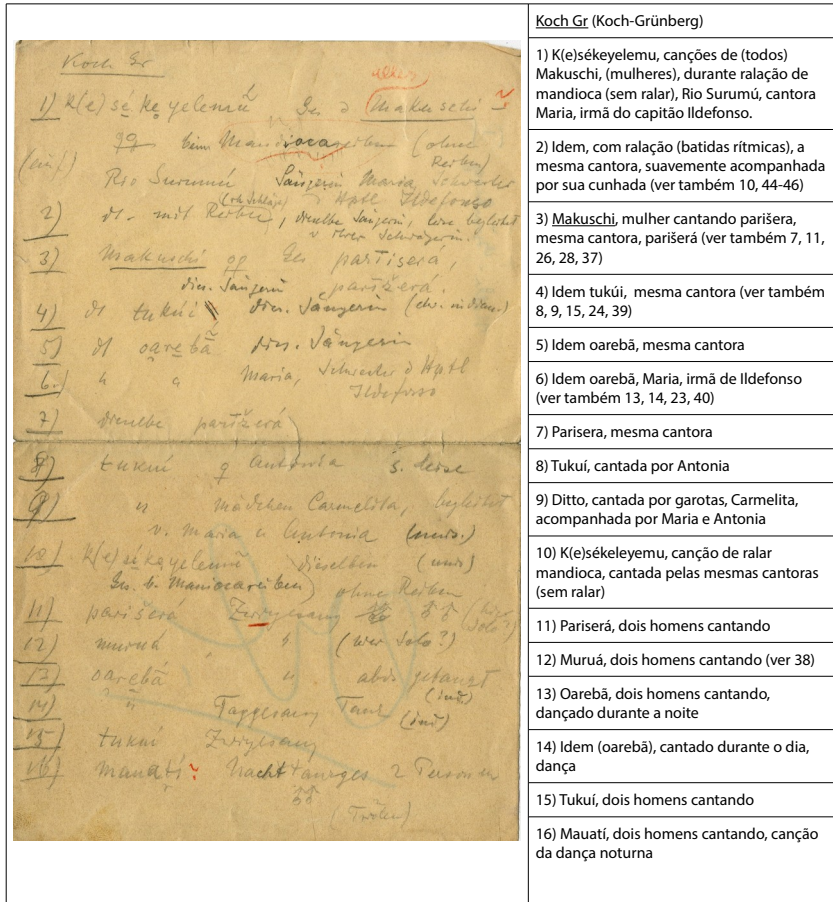 Koch Gr
aller
1) K(e)sé ke yelemũ Ges d Makuschi
♀♀ beim Mandiocareiben (ohne
Reiben)
Rio Surumú Sängerin Maria, Schwester
d Hptl Ildefonso
2) dt. mit Reiben, dieselbe Sängerin, leise begleitet
v. ihrer Schwägerin.
3) Makuschi Ges partiserá,
dies. Sängerin parižerá.
4) dt tukúi dies. Sängerin
5) dt oarebã dies. Sängerin
6.) " " Maria, Schwester d Hptl
Ildefonso
7) dieselbe parižerá
8) tukui ♀ Antonia s. leise
9) " Mädchen Carmelita, begleitet
v. Maria u Antonia
10) K(e)sé ke yelemũ dieselben
Ges. b. Maniocareiben) ohne Reiben
11) parišerá Zwiegesang
12) muruá " (wer Solo?)
13) oarebá "
14) " Taggesang Tanz
15) tukui Zwiegesang
16) mauatí ? Nachttanzges 2 Personen
Koch Gr (Koch-Grünberg)
1) K(e)sékeyelemu, canções de (todos)
Makuschi, (mulheres), durante ralação de
mandioca (sem ralar), Rio Surumú, cantora
Maria, irmã do capitão Ildefonso.
2) Idem, com ralação (batidas rítmicas), a
mesma cantora, suavemente acompanhada
por sua cunhada (ver também 10, 44-46)
3) Makuschi, mulher cantando parišera,
mesma cantora, parišerá (ver também 7, 11,
26, 28, 37)
4) Idem tukúi, mesma cantora (ver também
8, 9, 15, 24, 39)
5) Idem oarebã, mesma cantora
6) Idem oarebã, Maria, irmã de Ildefonso
(ver também 13, 14, 23, 40)
7) Parisera, mesma cantora
8) Tukuí, cantada por Antonia
9) Ditto, cantada por garotas, Carmelita,
acompanhada por Maria e Antonia
10) K(e)sékeleyemu, canção de ralar
mandioca, cantada pelas mesmas cantoras
(sem ralar)
11) Pariserá, dois homens cantando
12) Muruá, dois homens cantando (ver 38)
13) Oarebã, dois homens cantando,
dançado durante a noite
14) Idem (oarebã), cantado durante o dia,
dança
15) Tukuí, dois homens cantando
16) Mauatí, dois homens cantando, canção
da dança noturna